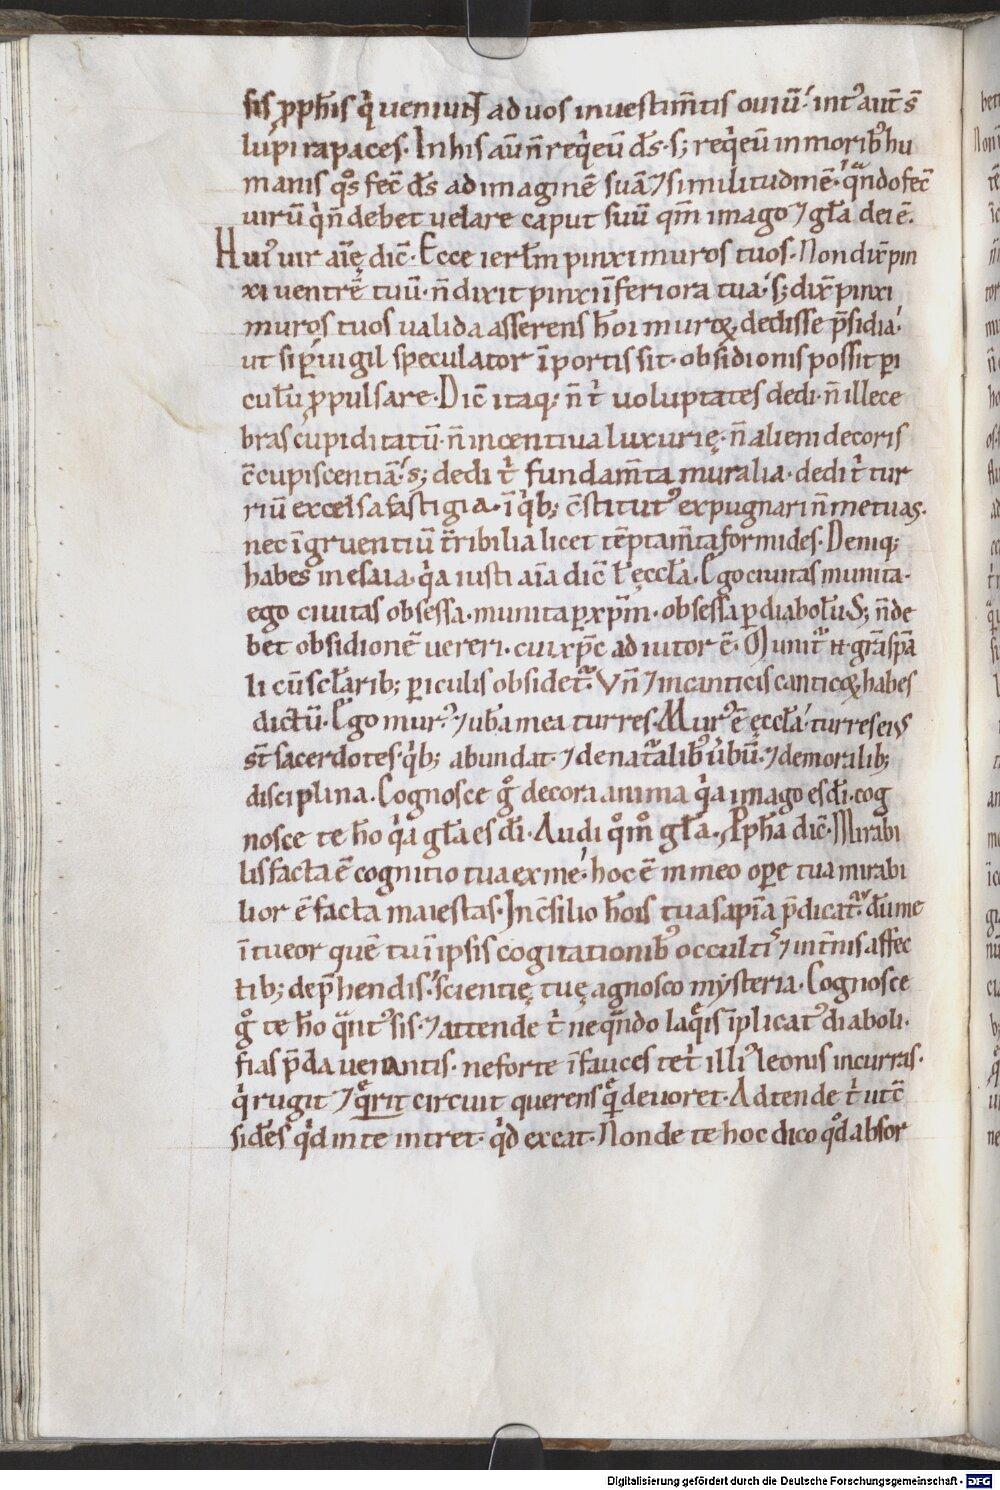 sis ꝓph̄is q̇ ueniunt ad uos inuestim̄tis ouiū. intꝰ aut̄ s̄
lupi rapaces. In his aū n̄ reqͥ eū d̄s. s; reqͥ eū in moribꝰ hu
manis qͦs fec̄ d̄s ad imaginē suā ⁊ similitudinē. qͣndo fec̄
uirū qͥ n̄ debet uelare caput suū qm̄ imago ⁊ gl̄a dei ē.
Huiꝰ uir aīę dic̄. Ecce ierl̄m pinxi muros tuos. Non dix̄ pin
xi uentrē tuū. n̄ dixit pinxi īferiora tua. s; dix̄ pinxi
muros tuos ualida asserens h̄oi muroꝝ dedisse p̄sidia.
ut si ꝑuigil speculator ī portis sit. obsidionis possit ꝑi
cul̄u ꝓpulsare. Dic̄ itaq; n̄ tͥ uoluptates dedi. n̄ illece
bras cupiditatū. n̄ incentiua luxurię. n̄ alieni decoris
c̄cupiscentiā. s; dedi tͥ fundam̄ta muralia. dedi tͥ tur
riū excelsa fastigia. ī qͥb; c̄stitutꝰ expugnari n̄ metuas.
nec īgruentiū t̄ribilia licet tēptam̄ta formides. Deniq;
habes in esaia. qͥa iusti aīa dic̄ ł ęccl̄a. Ego ciuitas munita.
ego ciuitas obsessa. munita ꝑ xp̄m. obsessa ꝑ diabol̄u. S; n̄ de
bet obsidionē uereri. cui xp̄c adiutor ē. Munitͬ n̄. gr̄a spāa
li cū scl̄arib; ꝑiculis obsidetͬ. Vn̄ ⁊ in canticis canticoꝝ habes
dictū. Ego murꝰ. ⁊ ub̄a mea turres. Murꝰ ē ęccl̄a. turres eiꝰ
st̄ sacerdotes. qͥb; abundat. ⁊ de natͣalibꝰ ūbū. ⁊ de moralib;
disciplina. Cognosce gͦ decora anima qͥa imago es d̄i. cog
nosce te h̄o qͥa gl̄a es d̄i. Audi qͦmͦ gl̄a. Ꝓph̄a dic̄. Mirabi
lis facta ē cognitio tua ex me. hoc ē in meo oꝑe tua mirabi
lior ē facta maiestas. In c̄silio h̄ois tua sapīa p̄dicatͬ. dū me
ītueor quē tu īipsis cogitationibꝰ occultis ⁊ int̄nis affec
tib; dep̄hendis. scientię tuę agnosco mysteria. Cognosce
gͦ te h̄o qͣntꝰ sis. ⁊ attende tͥ ne qͣndo laqͥs īplicatꝰ diaboli.
fias p̄da uenantis. ne forte ī fauces tetͥ illiꝰ leonis incurras.
qͥ rugit ⁊ qͣrit circuit querens quē deuoret. Adtende tͥ ut c̄
sid̄es qͥd in te intret. qͥd exeat. Non de te hoc dico qͦd absor
Digitalisierung gefördert durch die Deutsche Forschungsgemeinschaft - DFG